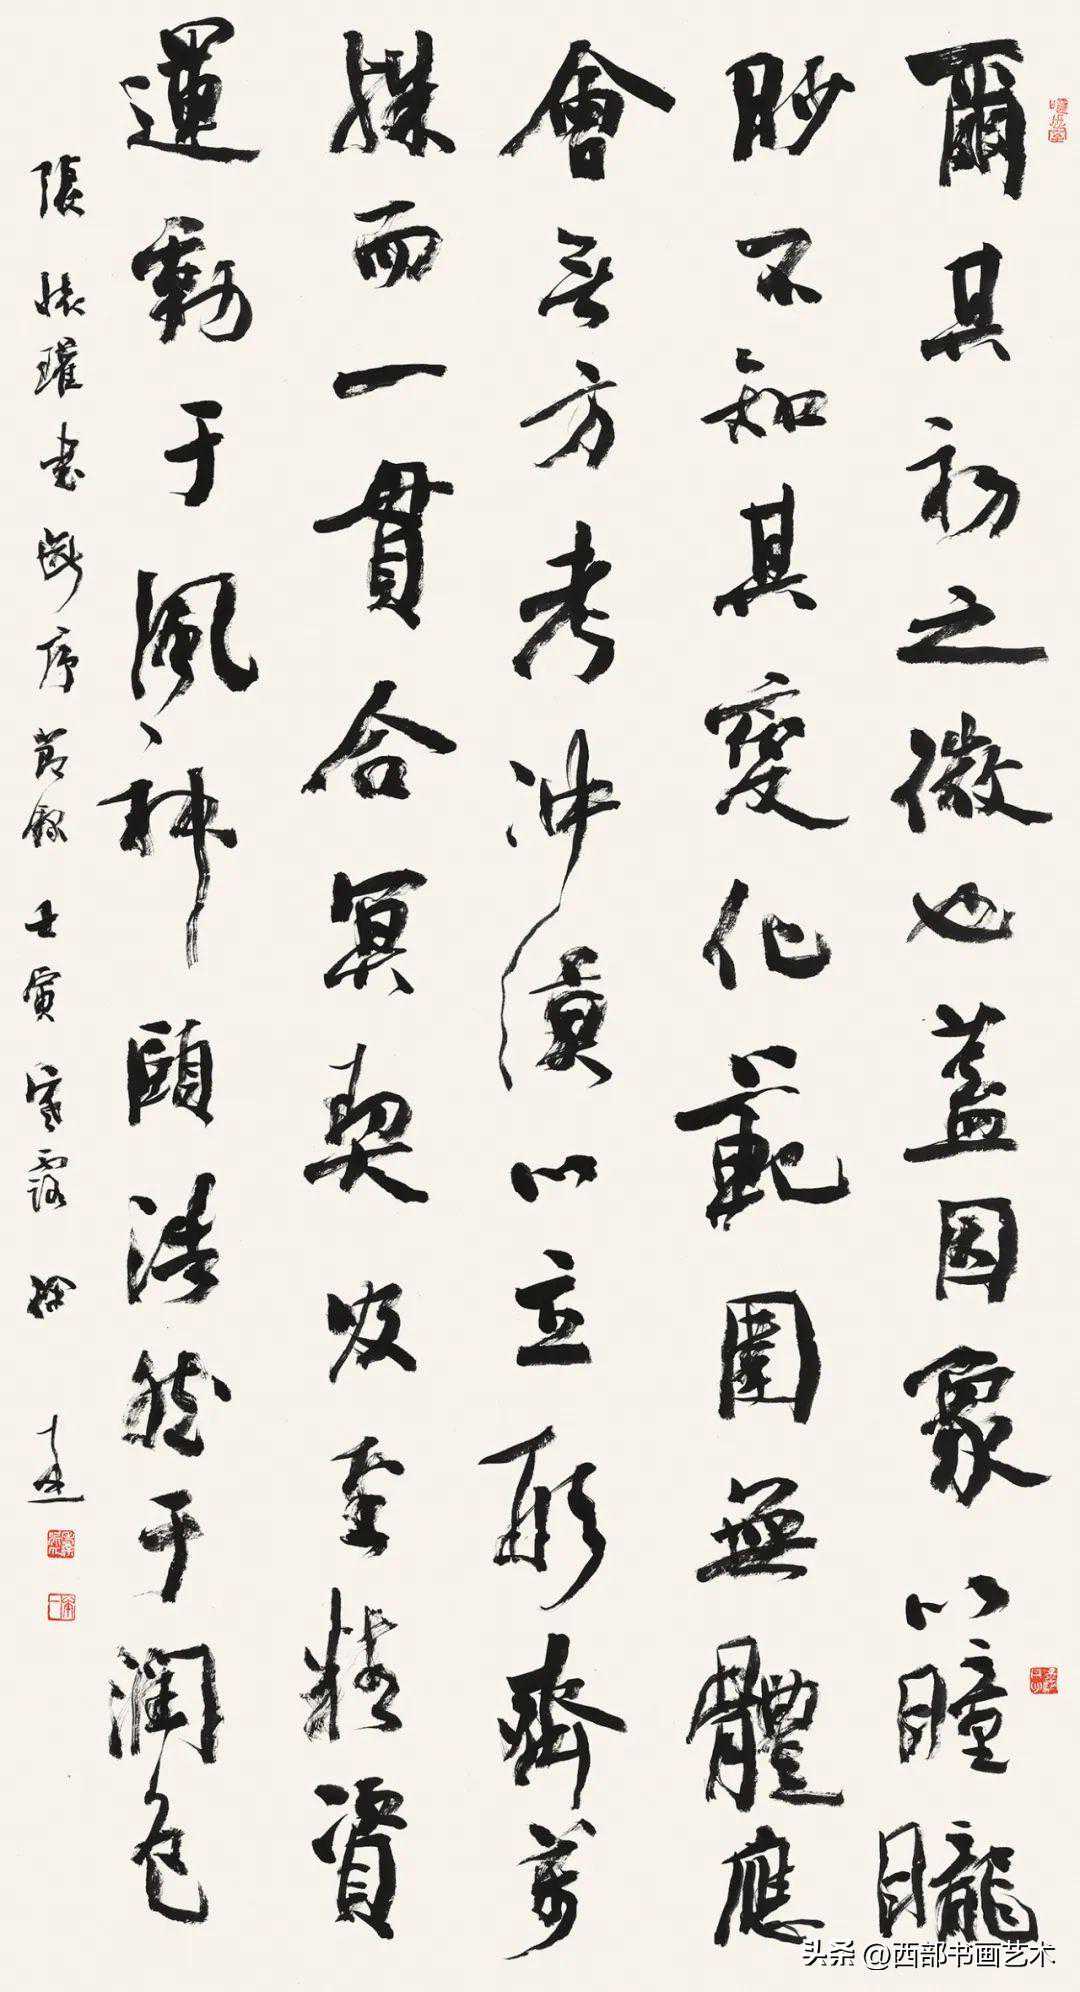 爾其初之微也蓋因象以瞳矓
眇不知其變化範圍無體應
會无方考冲漠以立形齊萬
殊而一貫合冥契吸至精資
運動于風神頤浩然于潤色
張懷瓘書斷序節錄壬寅寒露徐
头条 @西部书画艺术